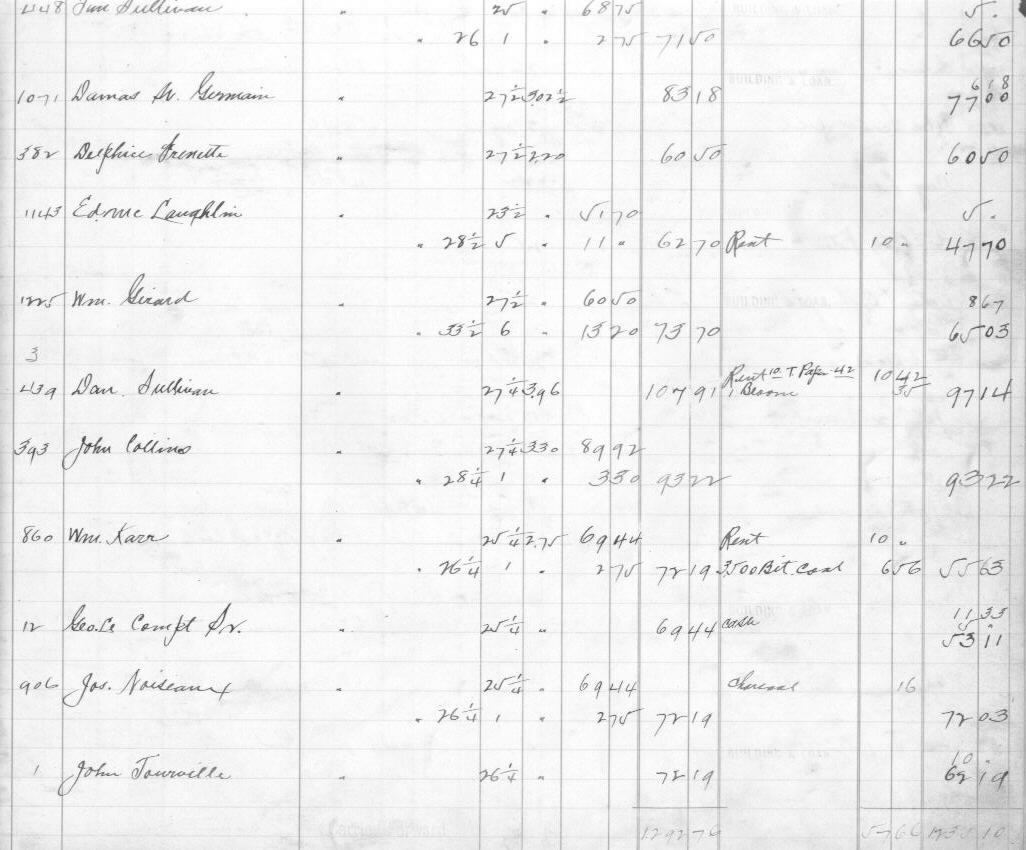 Sullivan " 25 " 6875 5.
" 26 1 " 275 7150 6650
618
1071 Damas St. Germain " 27½ 3.02½ 8318 7700
382 Delphice Frenette " 27½ 2.20 6050 6050
1143 Ed. McLaughlin " 23½ " 5170 5.
" 28½ 5 " 11 " 6270 Rent 10 " 4770
1225 Wm. Girard " 27½ " 6050 867
" 33½ 6 " 1320 7370 6503
3
439 Dan. Sullivan " 27¼ 3.96 10791 Rent 10 T. Paper 42 1042 9714
1 Broom 35
393 John Collins " 27¼ 3.30 8992
" 28¼ 1 " 330 9322 9322
860 Wm. Karr " 25¼ 2.75 6944 Rent 10 "
" 26¼ 1 " 275 7219 3500 Bit. Coal 656 5563
1133
5 "
12 Geo. Le Compt Sr. " 25¼ " 6944 cash 5311
906 Jos. Noiseaux " 25¼ " 6944 Charcoal 16
" 26¼ 1 " 275 7219 7203
10 "
1 John Tourville " 26¼ " 7219 6219
129276 5766 123510